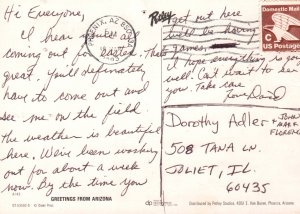 Hi Everyone,
I hear you're all
coming out for Easter. That's
great. You'll definately
have to come out and
see me on the field
The weather is beautiful
here. We've been working
out for about a week
now. By the time you
GREETINGS FROM ARIZONA
get out here
we'll be having
games.
I hope everything is going
well. Can't wait to hear
you. Take care
Love David
PHOENIX, AZ
Domestic Mail
C
US Postage
Dorothy Adler + JOHN
MAE +
FLORENCE
508 TANA LN.
JOLIET, IL.
60435
Distributed by Petley Studios, 4051 E. Van Buren, Phoenix, Arizona